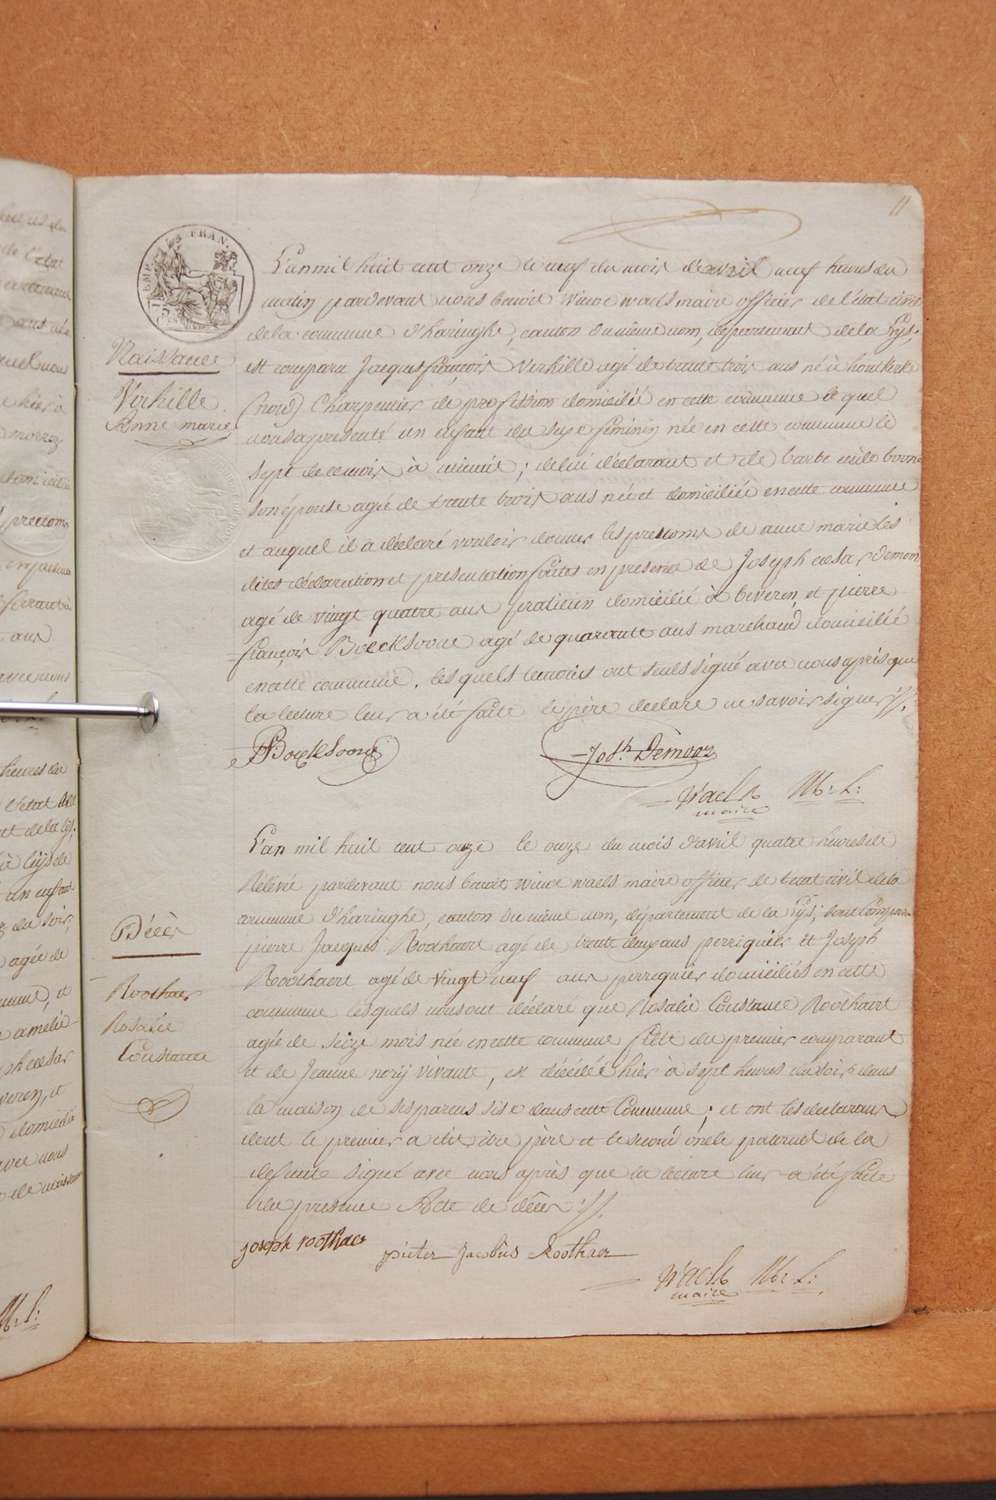 11
EMP. FRAN.
L'an mil huit cent onze le neuf du mois d'avril neuf heures du
matin pardevant nous benoit winoc waels maire officier de l'état civil
de la commune d'haringhe, canton du même nom, département de la Lys,
est comparu Jacques françois Verhille agé de trente trois ans né à houtkerke
(nord) Charpentier de profession domicilié en cette commune le quel
nous a presenté un enfant du sexe feminin née en cette commune le
sept de ce mois à minuit; de lui déclarant et de barbe
son épouse agée de trente trois ans née et domiciliée en cette commune
et auquel il a déclaré vouloir donner les prenoms de anne marie les
dites déclaration et presentation faites en presence de Joseph cesar Demon
agé de vingt quatre ans praticien domicilié à beveren, et pierre
françois Boecksoone agé de quarante ans marchand domicilié
en cette commune. les quels temoins ont seuls signé avec nous après que
la lecture leur a été faite le père declare ne savoir signer //.
Naissance
Verhille
Anne marie
Boecksoone
Jos.h Demoor
Waels M: L:
maire
L'an mil huit cent onze le onze du mois d'avril quatre heures de
Rélévé pardevant nous benoit winoc waels maire officier de l'etat civil de la
commune d'haringhe, canton du même nom, département de la Lys; sont comparu
pierre Jacques Roothaert agé de trente deux ans perriquier et Joseph
Roothaert agé de vingt neuf ans perriquier domiciliés en cette
commune lesquels nous ont déclaré que Rosalie Constance Roothaert
agée de Seize mois née en cette commune fille du premier comparant
et de Jeanne norij vivante, est décédée hier à sept heures du soir dans
la maison de ses parens sise dans cette Commune; et ont les declarans
dont le premier a dit être père et le second oncle paternel de la
defunte signé avec nous après que la lecture leur a été faite
du present Acte de décès //.
Décès
Roothaer
Rosalie
Constance
joseph roothaer
pieter Jacobus Roothaer
Waels M: L:
maire